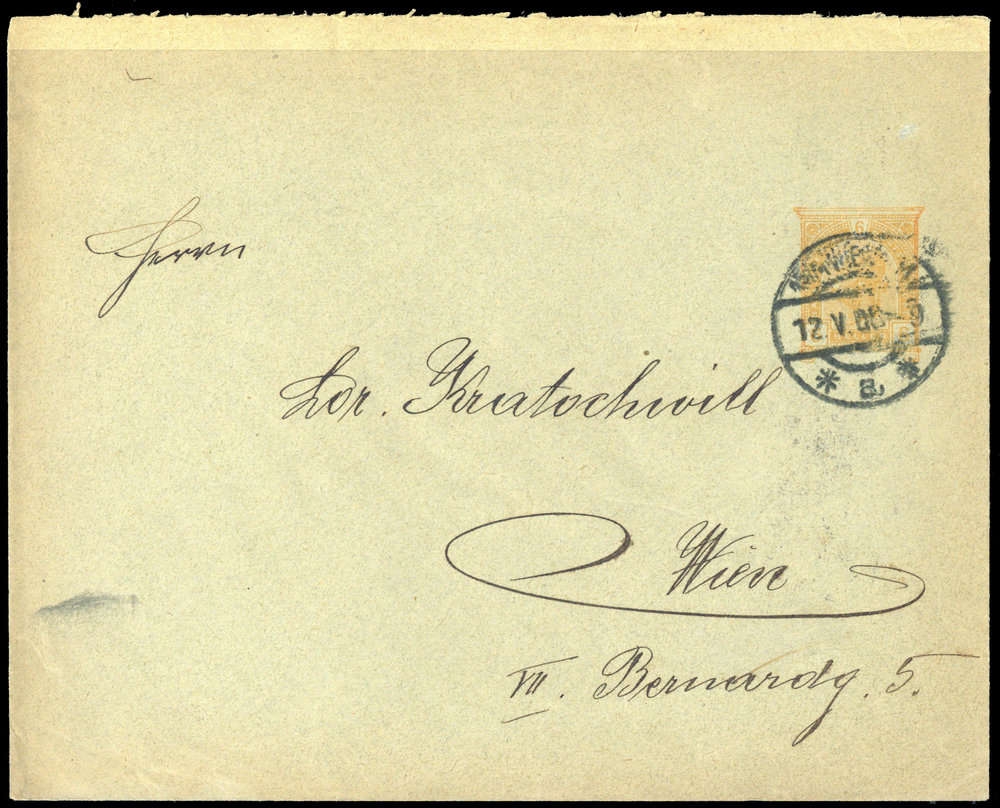 Herrn
Lor. Kratochwill
Wien
VII. Bernardg. 5.
12.V.08-9
* a *